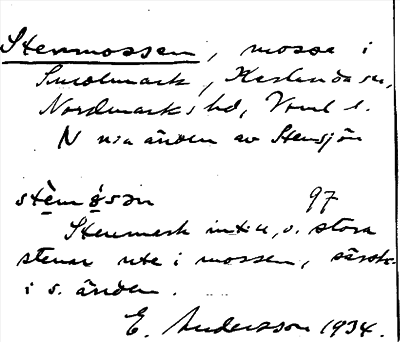 Stenmossen, mosse i
Smolmark, Karlanda sn,
Nordmarks hd, Vrml l.
N n:a änden av Stensjön
stèn mósən 97
Stenmark intill, o. stora
stenar ute i mossen, särsk.
i s. änden.
E. Andersson 1934.